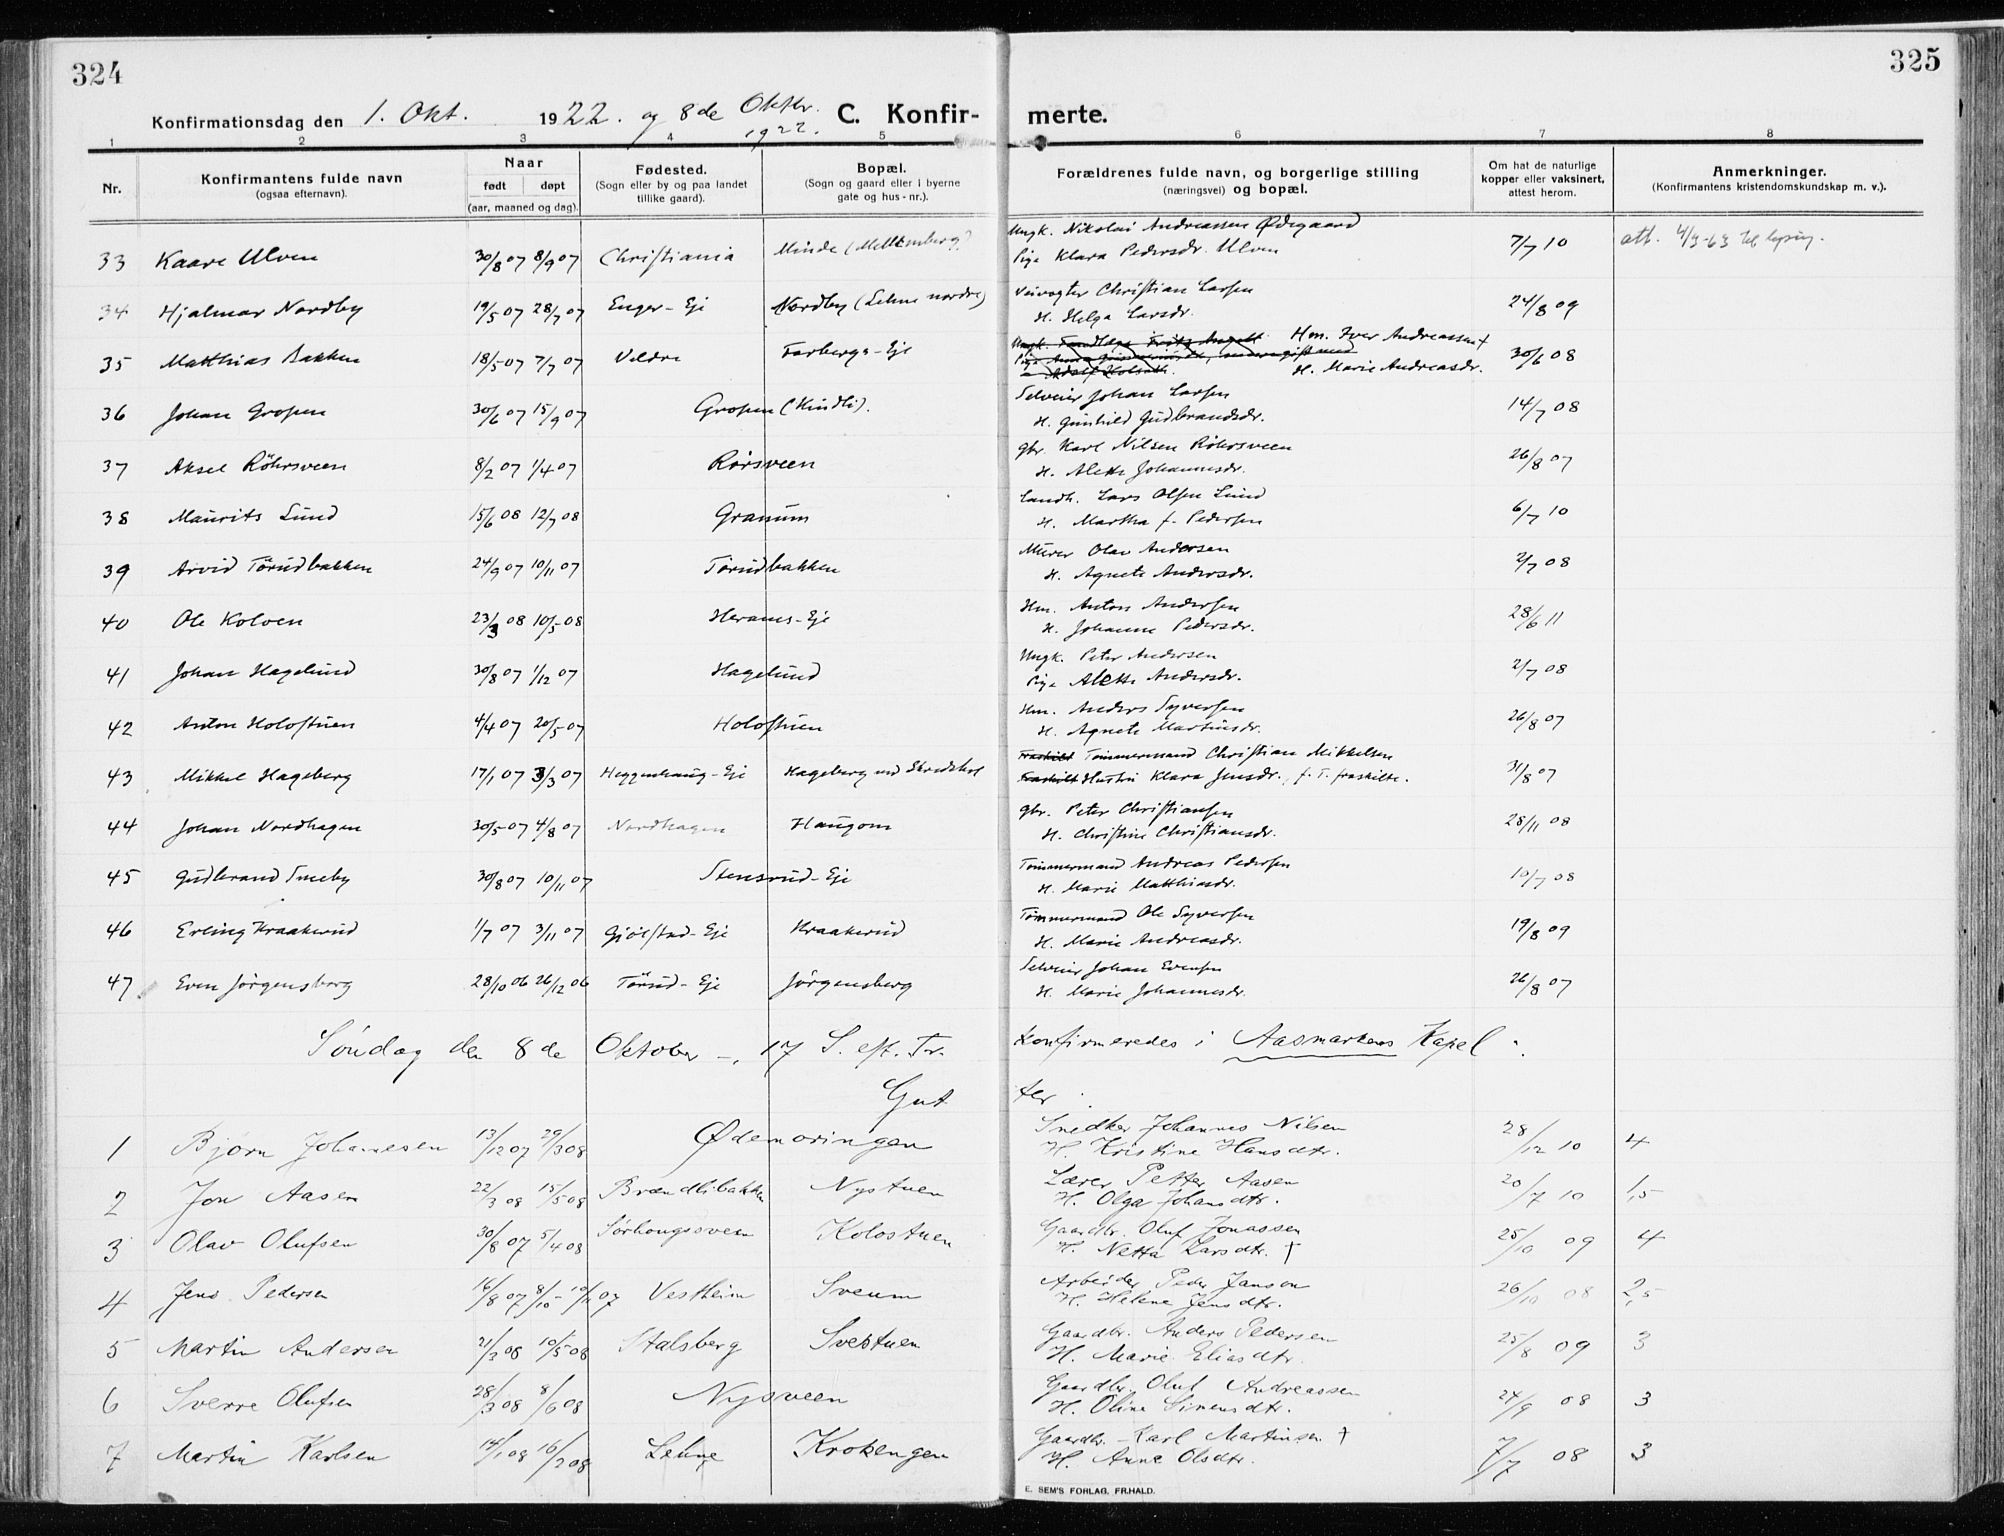 324
325
Konfirmationsdag den 1. Okt. 1922. og 8de Oktbr. 1922. C. Konfirmerte.
1 2 3 4 5 6 7 8
Nr.
Konfirmantens fulde navn
(ogsaa efternavn).
Naar
født døpt
(aar, maaned og dag).
Fødested.
(Sogn eller by og paa landet
tillike gaard).
Bopæl.
(Sogn og gaard eller i byerne
gate og hus-nr.).
Forældrenes fulde navn, og borgerlige stilling
(næringsvei) og bopæl.
Om hat de naturlige
kopper eller vaksinert,
attest herom.
Anmerkninger.
(Konfirmantens kristendomskundskap m. v.).
Ungk. Nikolai Andreassen Ødegaard
33 Kaare Ulven 30/8 07 8/9 07 Christiania Minde (Mellemberg) Pige Klara Pedersdr. Ulven 7/7 10 att. 4/3-63
Veivogter Christian Larsen
34 Hjalmar Nordby 19/5 07 28/7 07 Enger-Eje Nordby (Lehne nordre) H. Helga Larsdr. 24/8 09
Hm. Iver Andreassen †
35 Matthias Bakken 18/5 07 7/7 07 Veldre Farberga-Eje H. Marie Andreasdr. 30/6 08
Selveier Johan Larsen
36 Johan Gropen 30/6 07 15/9 07 Gropen (Kindli). H. Gunhild Gudbrandsdr. 14/7 08
gbr. Karl Nilsen Röhrsveen
37 Aksel Röhrsveen 8/2 07 1/4 07 Rörsveen H. Alette Johannesdr. 26/8 07
Landh. Lars Olsen Lund
38 Maurits Lund 15/6 08 12/7 08 Granum H. Martha f. Pedersen 6/7 10
Murer Olav Andersen
39 Arvid Törudbakken 24/9 07 10/11 07 Törudbakken H. Agnete Andersdr. 2/7 08
Hm. Anton Andersen
40 Ole Kolven 23/3 08 10/5 08 Herams-Eje H. Johanne Pedersdr. 28/6 11
Ungk. Peter Andersen
41 Johan Hagelund 30/8 07 1/12 07 Hagelund Pige Alette Andersdr. 2/7 08
Hm. Anders Syversen
42 Anton Holostuen 4/4 07 20/5 07 Holostuen H. Agnete Martinsdr. 26/8 07
Fraskilt Tömmermand Christian Mikkelsen
43 Mikkel Hageberg 17/1 07 3/3 07 Heggenhaug-Eje Hageberg Fraskilt Hustru Klara Jensdr., f. T. fraskilte. 31/8 07
gbr. Peter Christiansen
44 Johan Nordhagen 30/5 07 4/8 07 Nordhagen Haugom H. Christine Christiansdr. 28/11 08
Tömmermand Andreas Pedersen
45 Gudbrand Smeby 30/8 07 10/11 07 Stensrud-Eje H. Marie Matthiasdr. 10/7 08
Tömmermand Ole Syversen
46 Erling Kraakerud 1/7 07 3/11 07 Gjölstad-Eje Kraakerud H. Marie Andreasdr. 19/8 09
Selveier Johan Evensen
47 Even Jörgensberg 28/10 06 26/12 06 Törud-Eje Jörgensberg H. Marie Johannesdr. 26/8 07
Söndag den 8de Oktober -, 17 S. eft. Tr. konfirmeredes i Aasmarkens Kapel:
Gutter.
Snedker Johannes Nilsen
1 Bjørn Johannesen 13/12 07 29/3 08 Ødemoringen H. Kristine Hansdtr. 28/12 10 4
Lærer Petter Aasen
2 Jon Aasen 22/3 08 15/5 08 Brændlibakken Nystuen H. Olga Johansdtr. 20/7 10 1,5
Gaardbr. Oluf Jonassen
3 Olav Olufsen 30/8 07 5/4 08 Sørhougssveen Kolostuen H. Netta Larsdtr. † 25/10 09 4
Arbeider Peder Janson
4 Jens Pedersen 16/8 07 8/10 - 10/11 07 Vestheim Sveum H. Helene Jensdtr. 26/10 08 2,5
Gaardbr. Anders Pedersen
5 Martin Andersen 21/3 08 10/5 08 Stalsberg Svestuen H. Marie Eliasdtr. 25/8 09 3
Gaardbr. Oluf Andreassen
6 Sverre Olufsen 28/3 08 8/6 08 Nysveen H. Oline Simensdtr. 24/9 08 3
Gaardbr. Karl Martinsen †
7 Martin Karlsen 14/1 08 16/2 08 Lehne Krokengen H. Anne Olsdtr. 7/7 08 3
E. SEM'S FORLAG, FR.HALD.